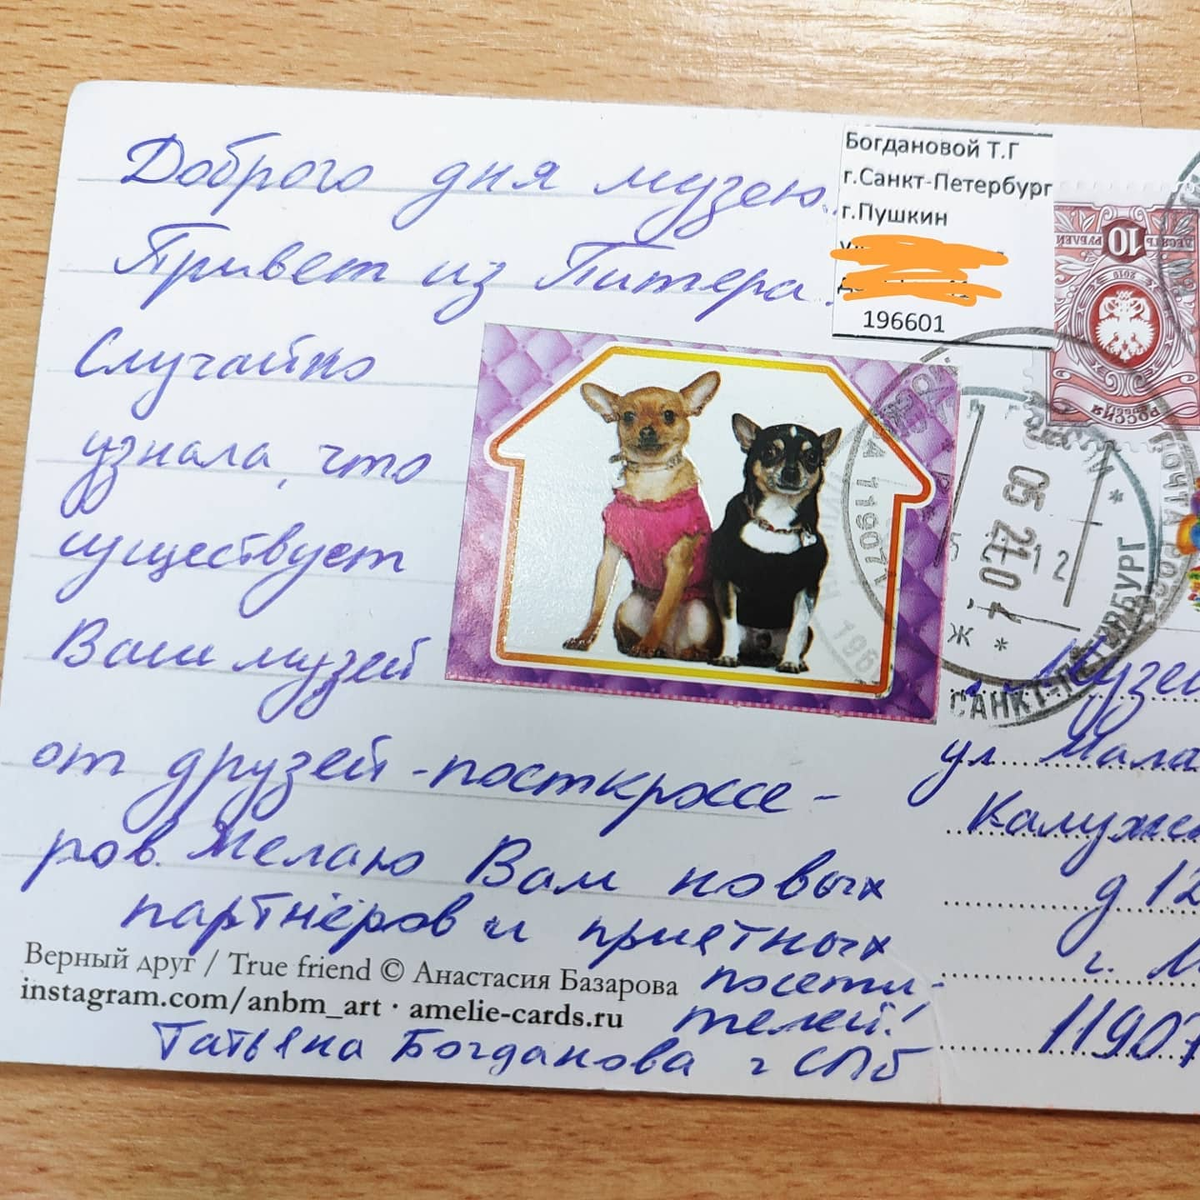 Доброго дня музею.
Привет из Питера.
Случайно
узнала, что
существует
Ваш музей
от друзей-посткроссе-
ров. Желаю Вам новых
партнёров и приятных
посети-
телей!
Верный друг / True friend © Анастасия Базарова
instagram.com/anbm_art · amelie-cards.ru
Татьяна Богданова г СПб
Богдановой Т.Г
г.Санкт-Петербург
г.Пушкин
196601
10
РОССИЯ
05 21.04
12
Ж
САНКТ-ПЕТЕРБУРГ
ПОЧТА
119071
ул Мала
Калужс
д 12
г. М
11907